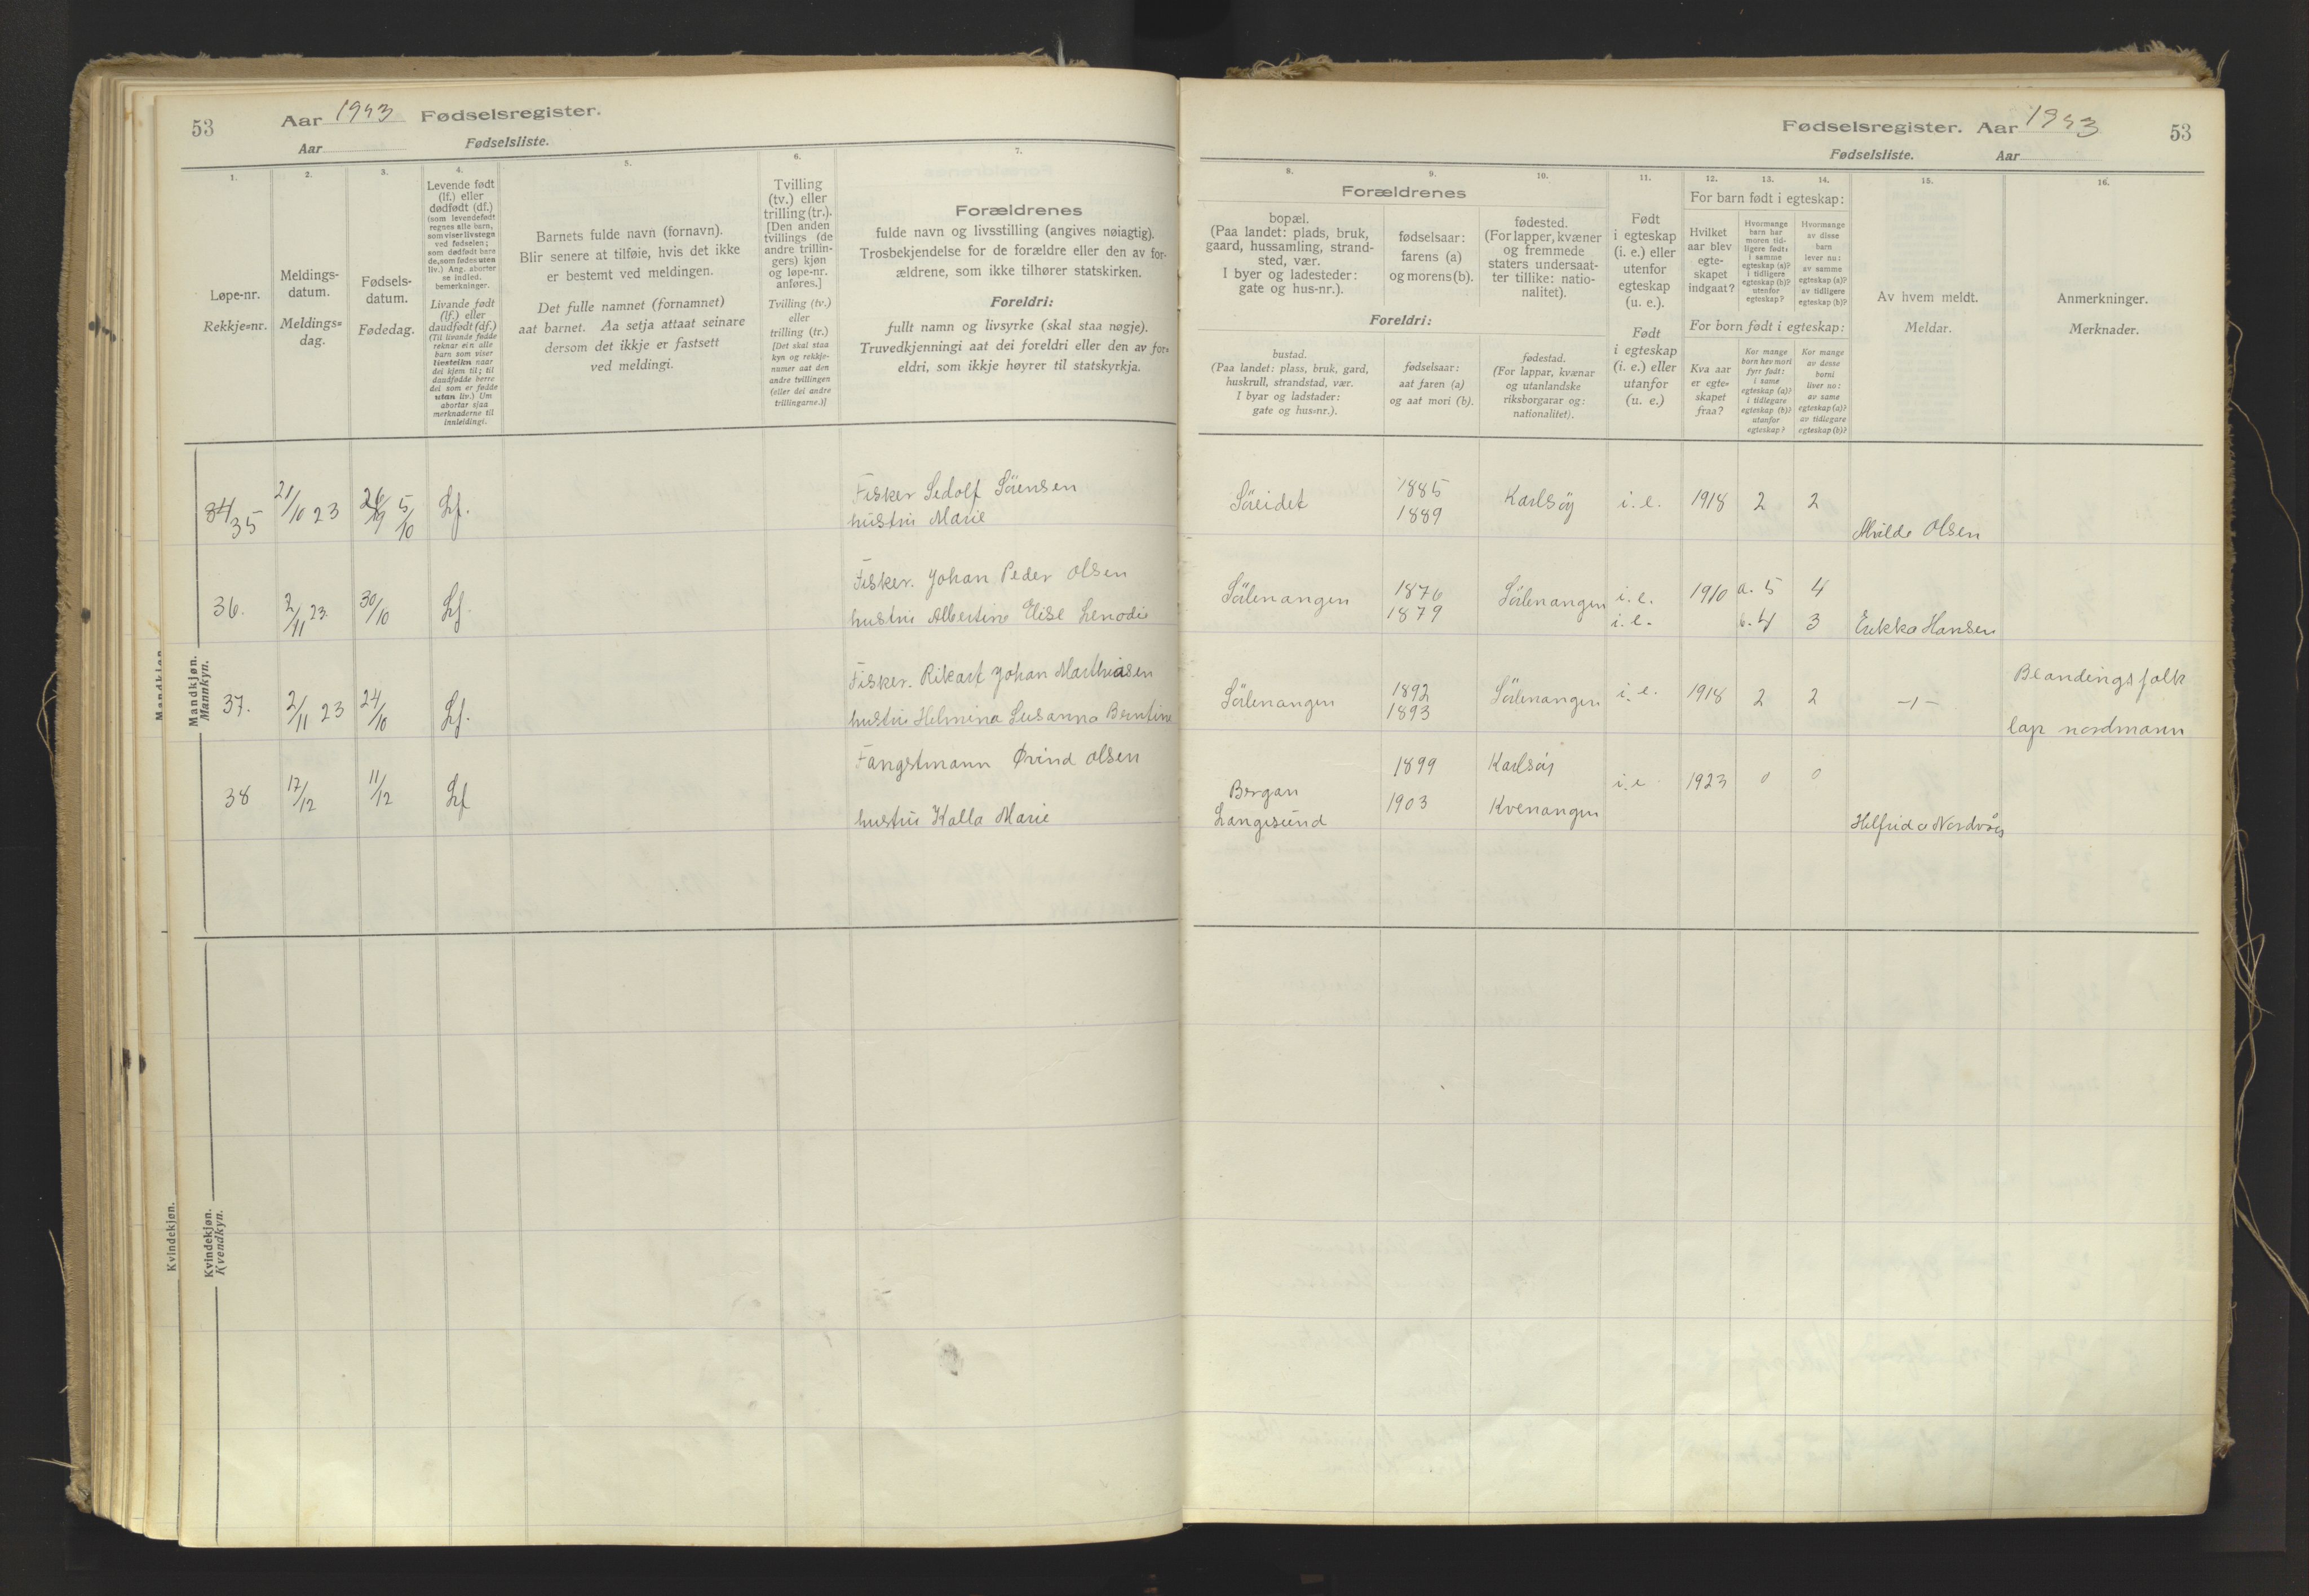 53
Aar 1923 Fødselsregister.
Aar Fødselsliste.
1.
Løpe-nr.
Rekkje=nr.
2.
Meldings-
datum.
Meldings=
dag.
3.
Fødsels-
datum.
Fødedag.
4.
Levende født
(lf.) eller
dødfødt (df.)
(som levendefødt
regnes alle barn,
som viser livstegn
ved fødselen;
som dødfødt bare
de, som fødes uten
liv.) Ang. aborter
se indled.
bemerkninger.
Livande født
(lf.) eller
daudfødt (df.)
(Til livande fødde
reknar ein alle
barn som viser
livsteikn naar
dei kjem til; til
daudfødde berre
dei som er fødde
utan liv.) Um
abortar sjaa
merknaderne til
innleidingi.
5.
Barnets fulde navn (fornavn).
Blir senere at tilføie, hvis det ikke
er bestemt ved meldingen.
Det fulle namnet (fornamnet)
aat barnet. Aa setja attaat seinare
dersom det ikkje er fastsett
ved meldingi.
6.
Tvilling
(tv.) eller
trilling (tr.).
[Den anden
tvillings (de
andre trillin-
gers) kjøn
og løpe-nr.
anføres.]
Tvilling (tv.)
eller
trilling (tr.)
[Det skal staa
kyn og rekkje-
numer aat den
andre tvillingen
(eller dei andre
trillingarne.)]
7.
Forældrenes
fulde navn og livsstilling (angives nøiagtig).
Trosbekjendelse for de forældre eller den av for-
ældrene, som ikke tilhører statskirken.
Foreldri:
fullt namn og livsyrke (skal staa nøgje).
Truvedkjenningi aat dei foreldri eller den av for=
eldri, som ikkje høyrer til statskyrkja.
Mandkjøn.
Mandkjøn.
Mannkyn.
34 35 21/10 23 5/10 Lf.
Fisker Sedolf Sörensen
hustru Marie
36. 2/11 23. 30/10 Lf.
Fisker. Johan Peder Olsen
hustru Albertine Elise Lenodie
37. 2/11 23 24/10 Lf.
Fisker. Rikart Johan Mathiasen
hustru Helmina Susanna Berntine
38 17/12 11/12 Lf
Fangstmann Øvind Olsen
hustru Kalla Marie
Kvindekjøn.
Kvindekjøn.
Kvendkyn.
Fødselsregister. Aar 1923
53
Fødselsliste. Aar
8.
Forældrenes
bopæl.
(Paa landet: plads, bruk,
gaard, hussamling, strand-
sted, vær.
I byer og ladesteder:
gate og hus-nr.).
Foreldri:
bustad.
(Paa landet: plass, bruk, gard,
huskrull, strandstad, vær.
I byar og ladstader:
gate og hus=nr.).
9.
fødselsaar:
farens (a)
og morens (b).
fødselsaar:
aat faren (a)
og aat mori (b).
10.
fødested.
(For lapper, kvæner
og fremmede
staters undersaat-
ter tillike: natio-
nalitet).
fødestad.
(For lappar, kvænar
og utanlandske
riksborgarar og:
nationalitet).
11.
Født
i egteskap
(i. e.) eller
utenfor
egteskap
(u. e.).
Født
i egteskap
(i. e.) eller
utanfor
(u. e.)
12.
13.
14.
For barn født i egteskap:
Hvilket
aar blev
egte-
skapet
indgaat?
Hvormange
barn har
moren tid-
ligere født:
i samme
egteskap (a)?
i tidligere
egteskap (b)?
utenfor
egteskap?
Hvormange
av disse
barn
lever nu:
av samme
egteskap (a)?
av tidligere
egteskap (b)?
For born født i egteskap:
Kva aar
er egte=
skapet
fraa?
Kor mange
born hev mori
fyrr født:
i same
egteskap (a)?
i tidlegare
egteskap (b)?
utanfor
egteskap?
Kor mange
av desse
borni
liver no:
av same
egteskap (a)?
av tidlegare
egteskap (b)?
15.
Av hvem meldt.
Meldar.
16.
Anmerkninger.
Merknader.
Söreidet 1885 1889 Karlsöy i. e. 1918 2 2 Alvilde Olsen
Sörlenangen 1876 1879 Sörlenangen i. e. i. e. 1910 a. 5 4
b. 4 3 Erikka Hansen
Sörlenangen 1892 1893 Sörlenangen i. e. 1918 2 2 -„-
Blandingsfolk
lap nordmann
Bergan
Langesund
1899 Karlsöy
1903 Kvenangen
i. e. 1923 0 0
Helfrida Nordvåg